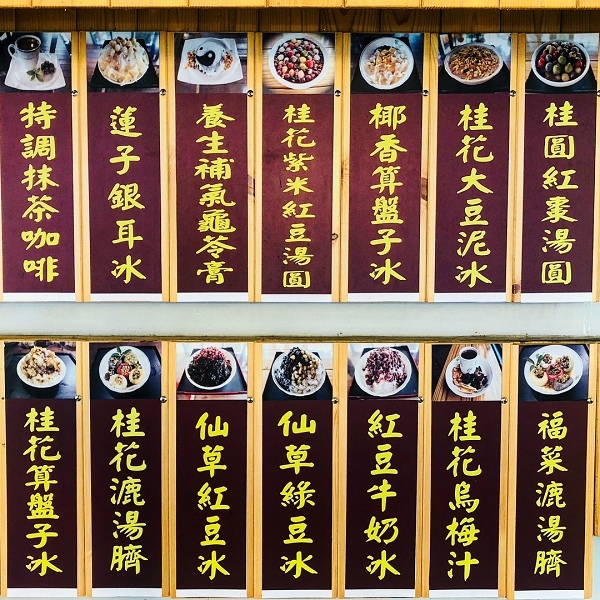 桂圓紅棗湯圓
桂花大豆泥冰
椰香算盤子冰
桂花紫米紅豆湯圓
養生補氣龜苓膏
蓮子銀耳冰
特調抹茶咖啡
福菜漉湯臍
桂花烏梅汁
紅豆牛奶冰
仙草綠豆冰
仙草紅豆冰
桂花漉湯臍
桂花算盤子冰